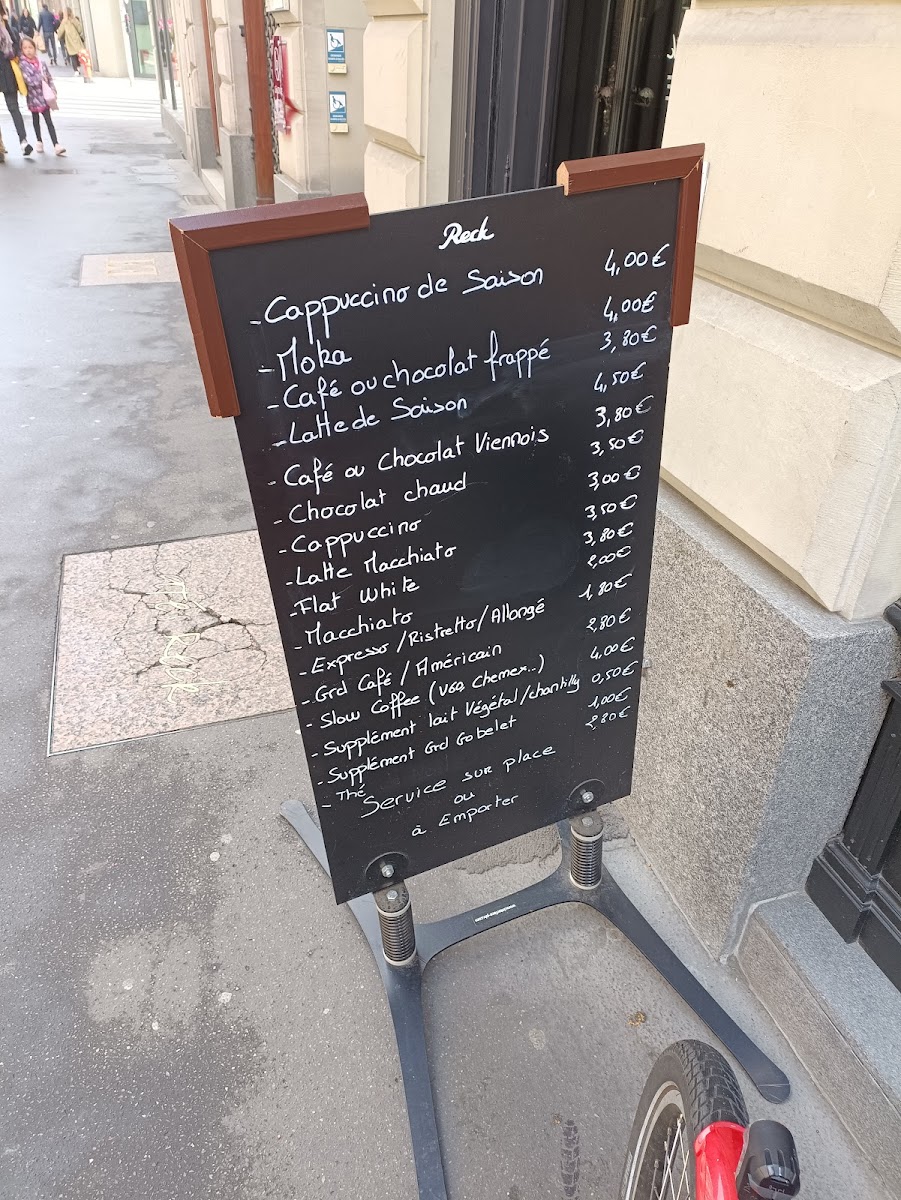 Reck
- Cappuccino de Saison 4,00€
- Moka 4,00€
- Café ou chocolat frappé 3,80€
- Latte de Saison 4,50€
- Café ou Chocolat Viennois 3,80€
- Chocolat chaud 3,50€
- Cappuccino 3,00€
- Latte Macchiato 3,50€
- Flat White 3,80€
- Macchiato 2,00€
- Expresso / Ristretto / Allongé 1,80€
- Grd Café / Américain 2,80€
- Slow Coffee (V60, Chemex..) 4,00€
- Supplément lait Végétal / chantilly 0,50€
- Supplément Grd Gobelet 1,00€
- Thé 2,80€
Service sur place
ou
à Emporter